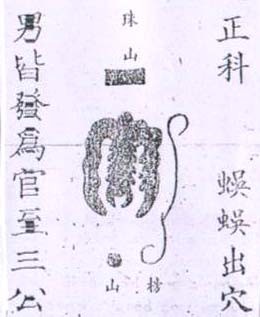 正科
蜈蜈出穴
珠山
山
男皆發爲官至三公